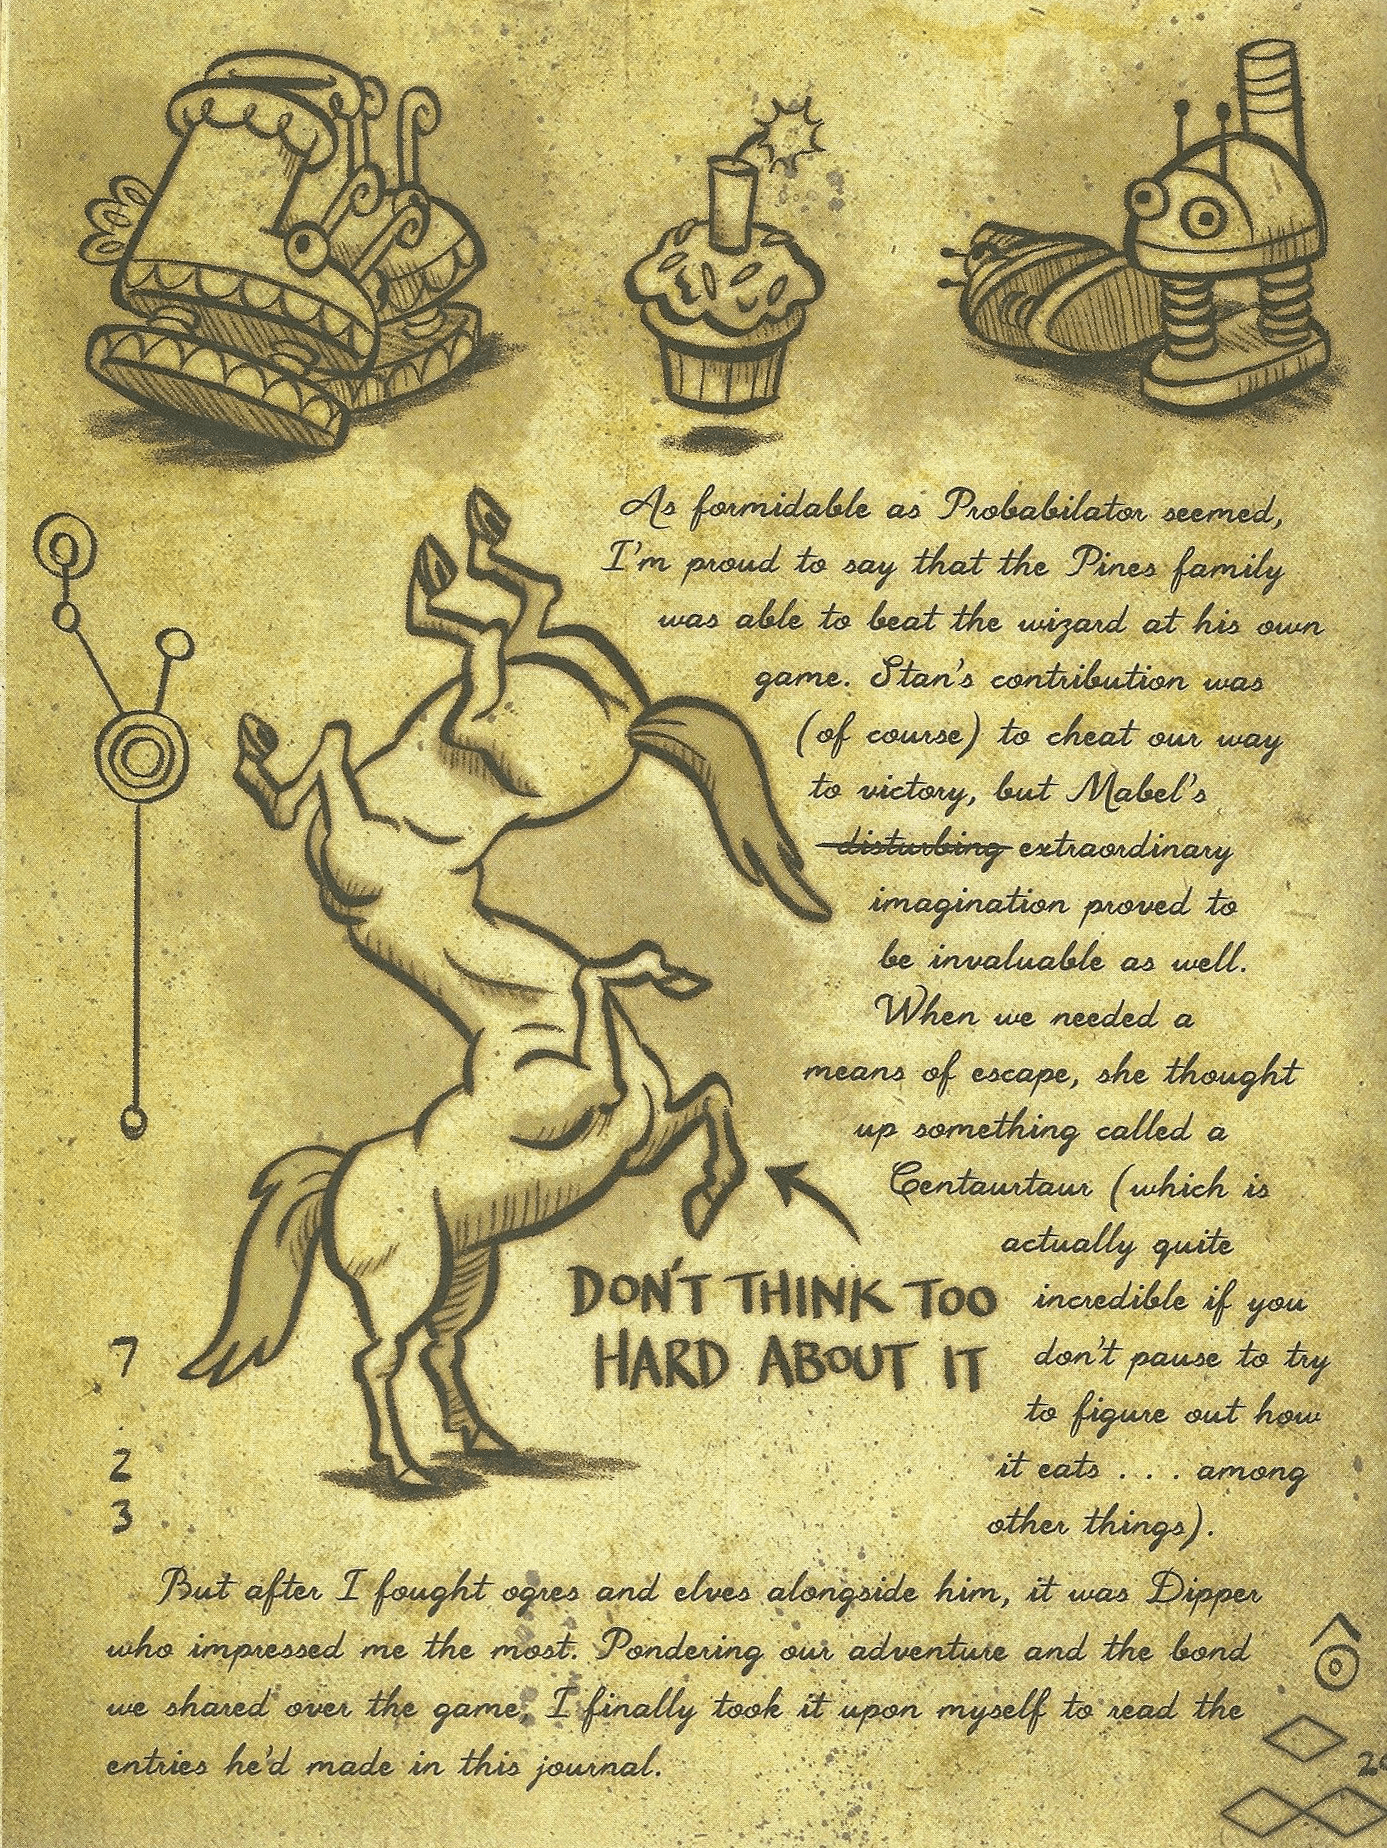 As formidable as Probabilator seemed,
I'm proud to say that the Pines family
was able to beat the wizard at his own
game. Stan's contribution was
(of course) to cheat our way
to victory, but Mabel's
disturbing extraordinary
imagination proved to
be invaluable as well.
When we needed a
means of escape, she thought
up something called a
Centaurtaur (which is
actually quite
DON'T THINK TOO
HARD ABOUT IT
incredible if you
don't pause to try
to figure out how
it eats . . . among
other things).
7
2
3
But after I fought ogres and elves alongside him, it was Dipper
who impressed me the most. Pondering our adventure and the bond
we shared over the game, I finally took it upon myself to read the
entries he'd made in this journal.